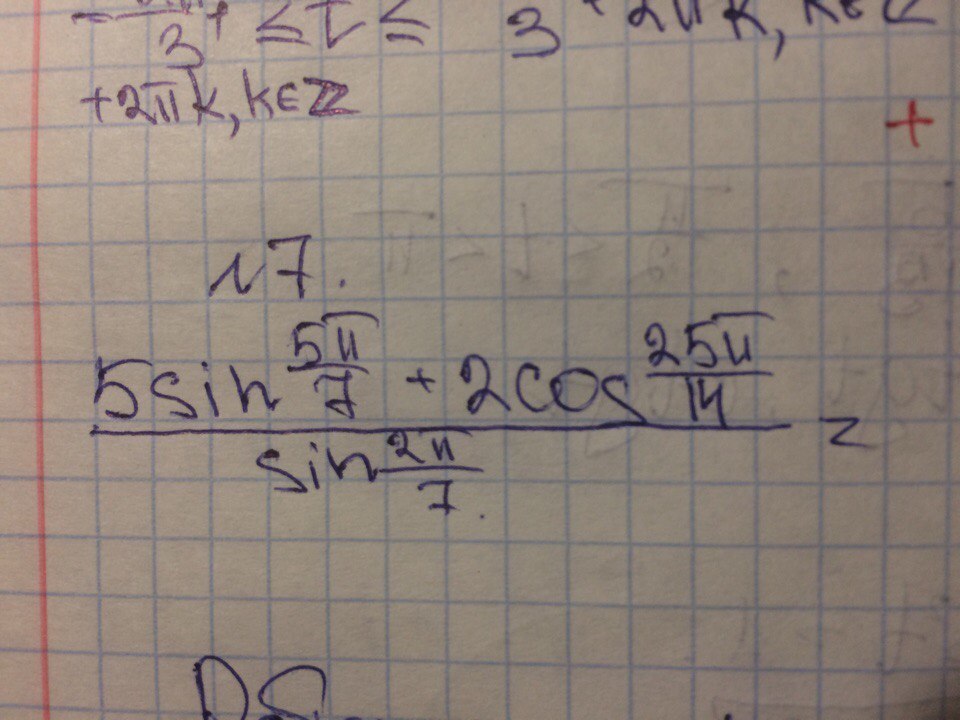 3 + ≤ t ≤ 3 + 2πk, k∈Z
+2πk, k∈Z
+
№7.
5sin 5π/7 + 2cos 25π/14
=
sin 2π/7.